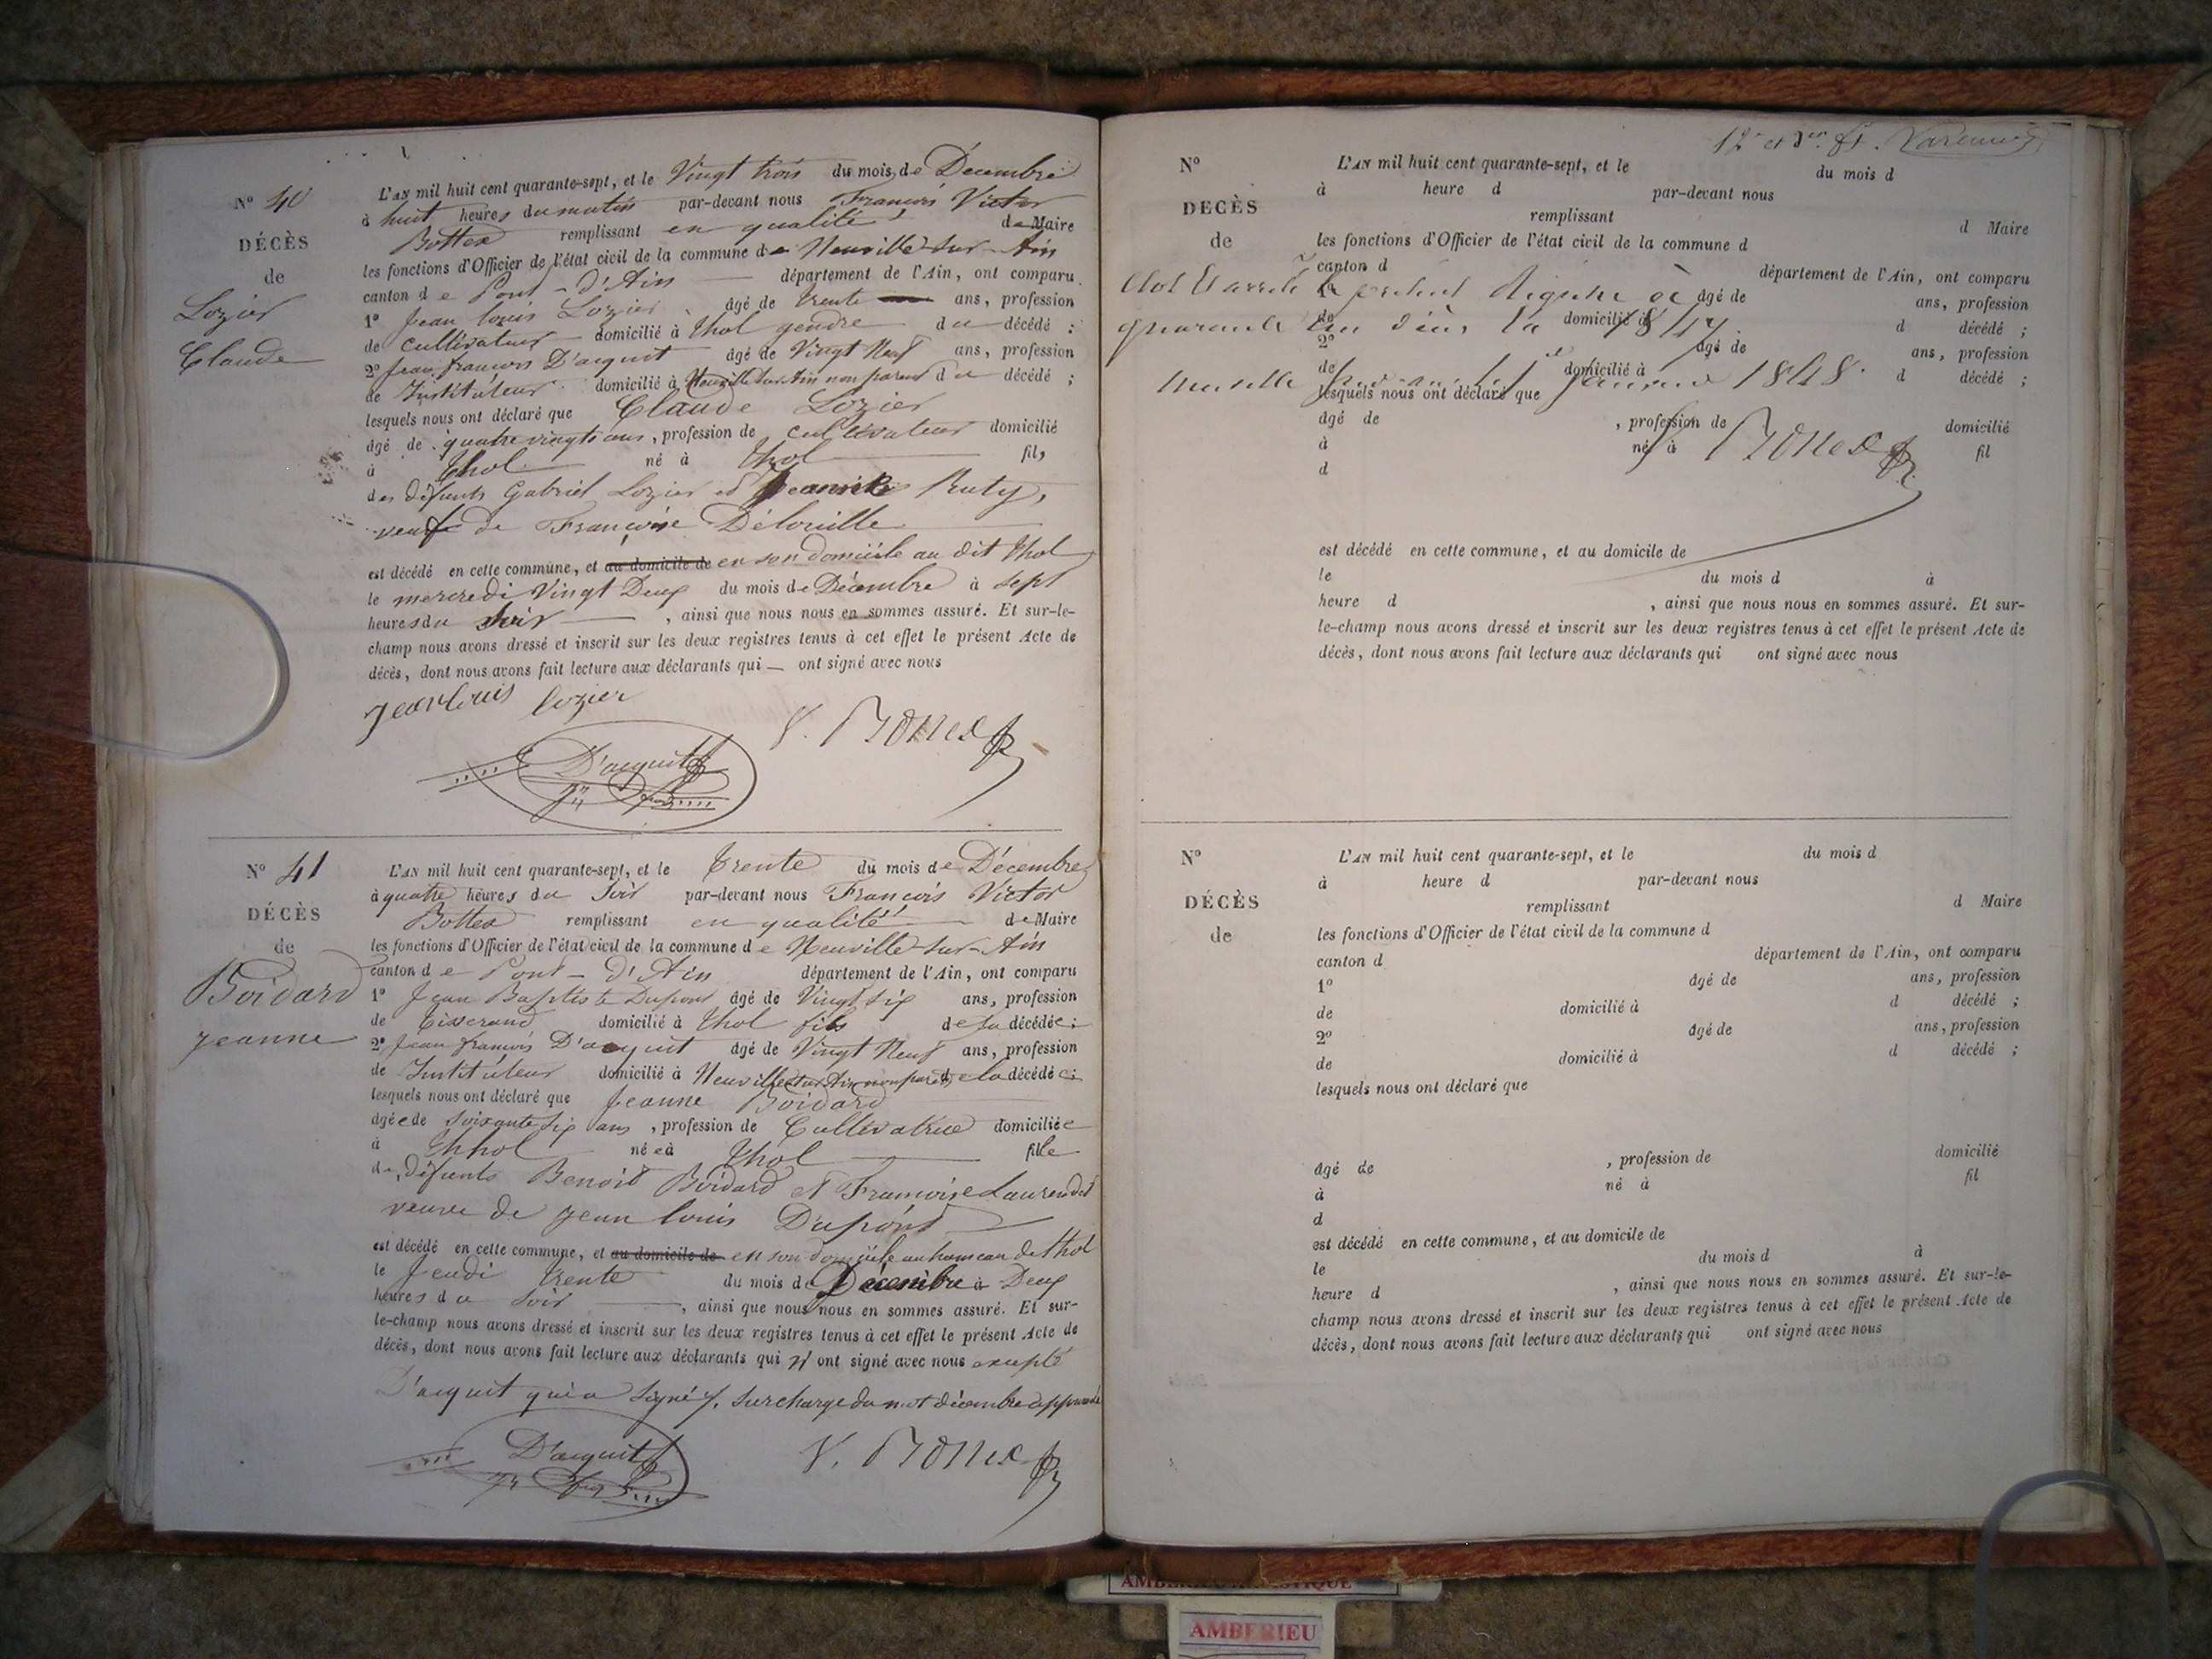 N° 40
DÉCÈS
de
Lozier
Claude
L'AN mil huit cent quarante-sept, et le Vingt trois du mois de Décembre
à huit heures du matin par-devant nous François Victor
Bottex remplissant en qualité de Maire
les fonctions d'Officier de l'état civil de la commune de Neuville-sur-Ain
canton de Pont-d'Ain département de l'Ain, ont comparu
1° Jean louis Lozier âgé de trente ans, profession
de cultivateur domicilié à Thol gendre du décédé ;
2° Jean françois D'acquit âgé de Vingt Neuf ans, profession
de Instituteur domicilié à Neuville sur Ain non parent du décédé ;
lesquels nous ont déclaré que Claude Lozier
âgé de quatre vingts ans, profession de cultivateur domicilié
à Thol né à Thol fils
des défunts Gabriel Lozier et Jeannette Ruty,
veuf de Françoise Délouille
est décédé en cette commune, et au domicile de en son domicile au dit Thol
le mercredi Vingt Deux du mois de Décembre à sept
heures du soir, ainsi que nous nous en sommes assuré. Et sur-le-
champ nous avons dressé et inscrit sur les deux registres tenus à cet effet le présent Acte de
décès, dont nous avons fait lecture aux déclarants qui ont signé avec nous
jean louis lozier
V. Bottex
D'acquit
N° 41
DÉCÈS
de
Boidard
jeanne
L'AN mil huit cent quarante-sept, et le trente du mois de Décembre
à quatre heures du soir par-devant nous François Victor
Bottex remplissant en qualité de Maire
les fonctions d'Officier de l'état civil de la commune de Neuville-sur-Ain
canton de Pont-d'Ain département de l'Ain, ont comparu
1° Jean Baptiste Dupont âgé de Vingt six ans, profession
de tisserand domicilié à Thol fils de la décédée ;
2° Jean françois D'acquit âgé de Vingt Neuf ans, profession
de Instituteur domicilié à Neuville sur Ain non parent de la décédée ;
lesquels nous ont déclaré que Jeanne Boidard
âgée de soixante six ans, profession de Cultivatrice domiciliée
à Thhol née à Thol fille
de défunts Benoit Boidard et Francoise Laurendet
veuve de jean louis Dupont
est décédé en cette commune, et au domicile de en son domicile au hameau de Thol
le Jeudi trente du mois de Décembre à Deux
heures du soir, ainsi que nous nous en sommes assuré. Et sur-
le-champ nous avons dressé et inscrit sur les deux registres tenus à cet effet le présent Acte de
décès, dont nous avons fait lecture aux déclarants qui n'ont signé avec nous excepté
D'acquit qui a signé, surcharge du mot décembre approuvée
D'acquit
V. Bottex
12e et der. ft. Varennes
N°
DECÈS
de
L'AN mil huit cent quarante-sept, et le du mois d
à heure d par-devant nous
remplissant d Maire
les fonctions d'Officier de l'état civil de la commune d
canton d département de l'Ain, ont comparu
Clos et arrêté le présent registre à âgé de ans, profession
quarante un décès de domicilié à 1847. d décédé ;
2° âgé de ans, profession
Neuville de domicilié à janvier 1848. d décédé ;
lesquels nous ont déclaré que
âgé de , profession de domicilié
à né à fil
d
V. Bottex
est décédé en cette commune, et au domicile de
le du mois d à
heure d , ainsi que nous nous en sommes assuré. Et sur-
le-champ nous avons dressé et inscrit sur les deux registres tenus à cet effet le présent Acte de
décès, dont nous avons fait lecture aux déclarants qui ont signé avec nous
N°
DÉCÈS
de
L'AN mil huit cent quarante-sept, et le du mois d
à heure d par-devant nous
remplissant d Maire
les fonctions d'Officier de l'état civil de la commune d
canton d département de l'Ain, ont comparu
1° âgé de ans, profession
de domicilié à d décédé ;
2° âgé de ans, profession
de domicilié à d décédé ;
lesquels nous ont déclaré que
âgé de , profession de domicilié
à né à fil
d
est décédé en cette commune, et au domicile de
le du mois d à
heure d , ainsi que nous nous en sommes assuré. Et sur-le-
champ nous avons dressé et inscrit sur les deux registres tenus à cet effet le présent Acte de
décès, dont nous avons fait lecture aux déclarants qui ont signé avec nous
AMBERIEU